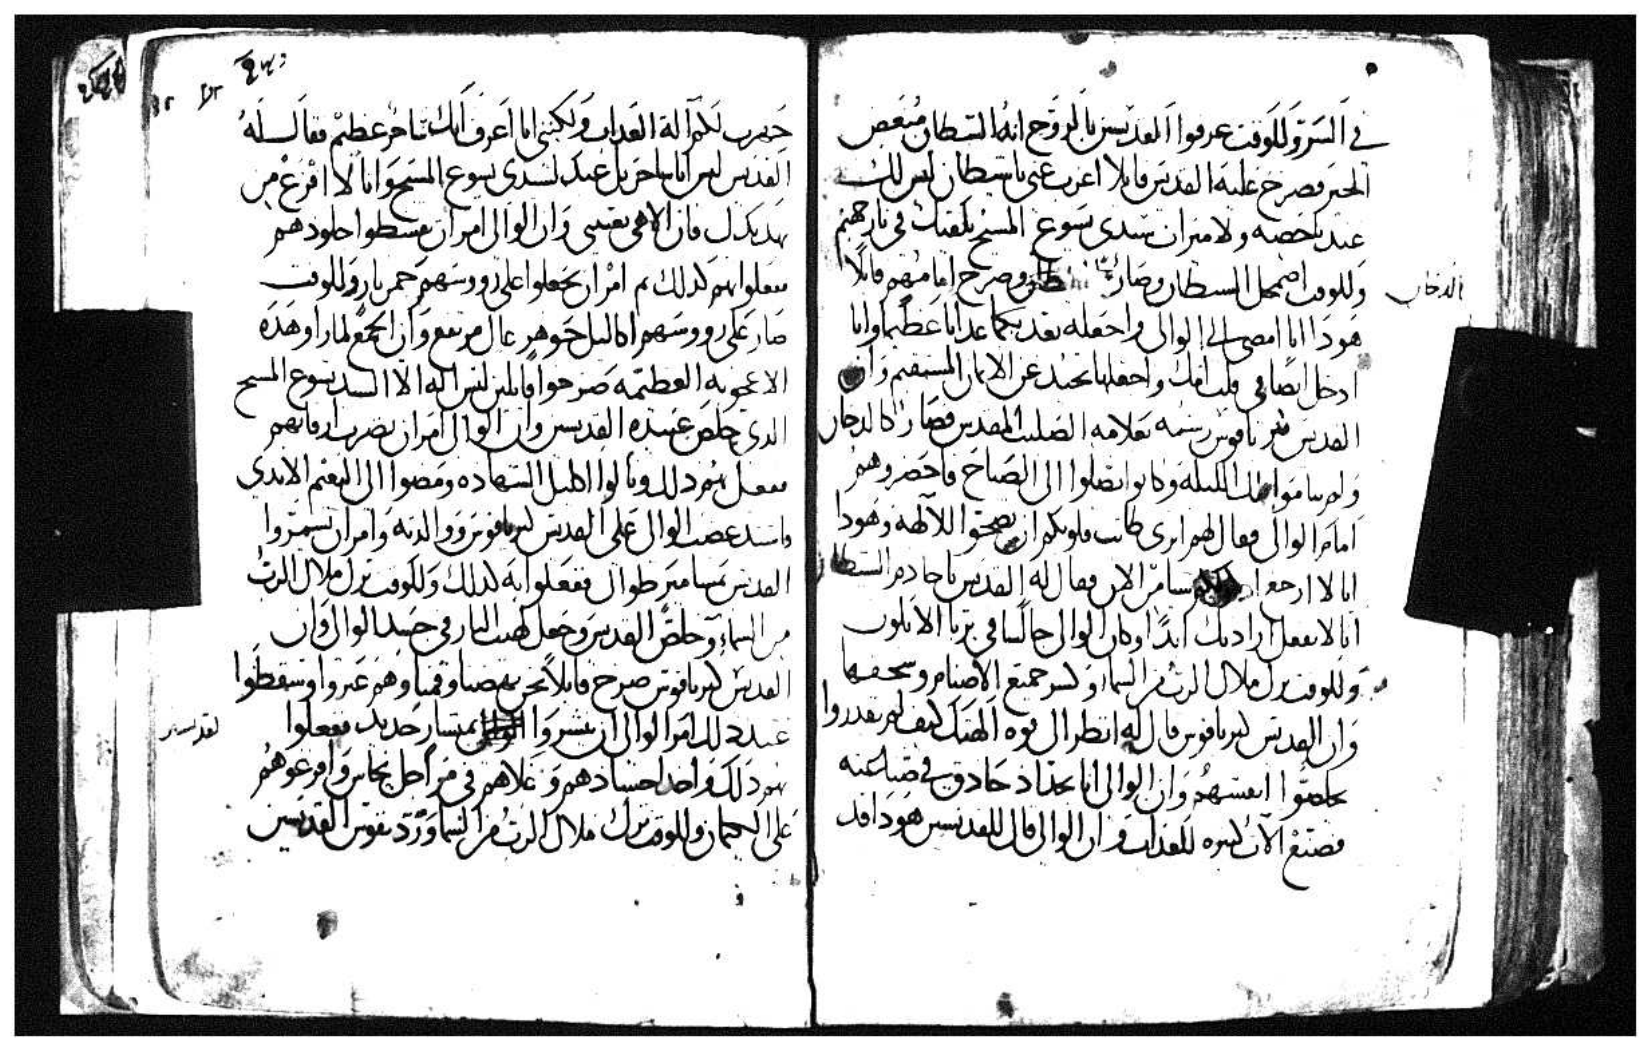 في السر وللوقت عرفوا القديسين بالروح انه الشيطان مبغض
الخير فصرخ عليه القديس قايلا اعزب عني ياشيطان ليس لك
عندي حصه ولا ميرات سيدى يسوع المسيح يلقيك في نار جهنم
وللوقت اضمحل الشيطان وصار وصرخ امامهم قايلا
الدخان
هودا انا امضى الى الوالى واجعله يعدبكما عدابا عظيما وانا
ادخل ايضا في قلب امك واجعلها تحيد عن الايمان المستقيم وان
القديس كبريانوس رشمه بعلامه الصليب المقدس فصار كالدخان
ولم يناموا تلك الليله وكانوا يصلوا الى الصباح فاحضروهم
امام الوالى فقال لهم ابرى طابت قلوبكم ان تضحوا للالهه وهودا
انا لا ارجع الان فقال له القديس ياخادم الشيطان
انا لا افعل ارادتك ابدا وكان الوالى جالسا في بربا الابلون
وللوقت نزل ملاك الرب من السما وكسر جميع الاصنام وسحقها
وان القديس قال له انظر الى قوه الهتك كيف لم يقدروا
يخلصوا انفسهم وان الوالى اتا بحداد حادق في صناعته
فصنع الات كثيره للعداب وان الوالى قال للقديسين هودا قد
حضرت لكم آلة العداب ولكنني انا اعرف انك ساحر عظيم فقال له
القديس ليس انا ساحر بل عبد لسيدى يسوع المسيح وانا لا افزع من
تهديدك فان الاهى يعينني وان الوالى امر ان يمشطوا جلودهم
ففعلوا بهم كدلك تم امر ان يجعلوا على رووسهم جمر نار وللوقت
صار على رووسهم اكاليل جوهر عال مرتفع وان الجمع لما راوا هده
الاعجوبه العظيمه صرخوا قايلين ليس اله الا السيد يسوع المسيح
الدى خلص عبيده القديسين وان الوالى امر ان تضرب ارقابهم
ففعل بهم دلك ونالوا اكليل الشهاده ومضوا الى النعيم الابدى
واشتد غضب الوالى على القديس ووالدته وامر ان يسمروا
القديس بمسامير طوال ففعلوا به كدلك وللوقت نزل ملاك الرب
من السماء وخلص القديس وجعل لهيب النار في جسد الوالى وان
القديس صرخ قايلا نحن نهضنا وقمنا وهم عتروا وسقطوا
عند دلك امر الوالى ان ينشروا بمنشار حديد ففعلوا
القديسين
بهم دلك واخد اجسادهم وغلاهم في مراجل نحاس وافرغوهم
على الكيمان وللوقت نزل ملاك الرب من السما ورد نفوس القديسين